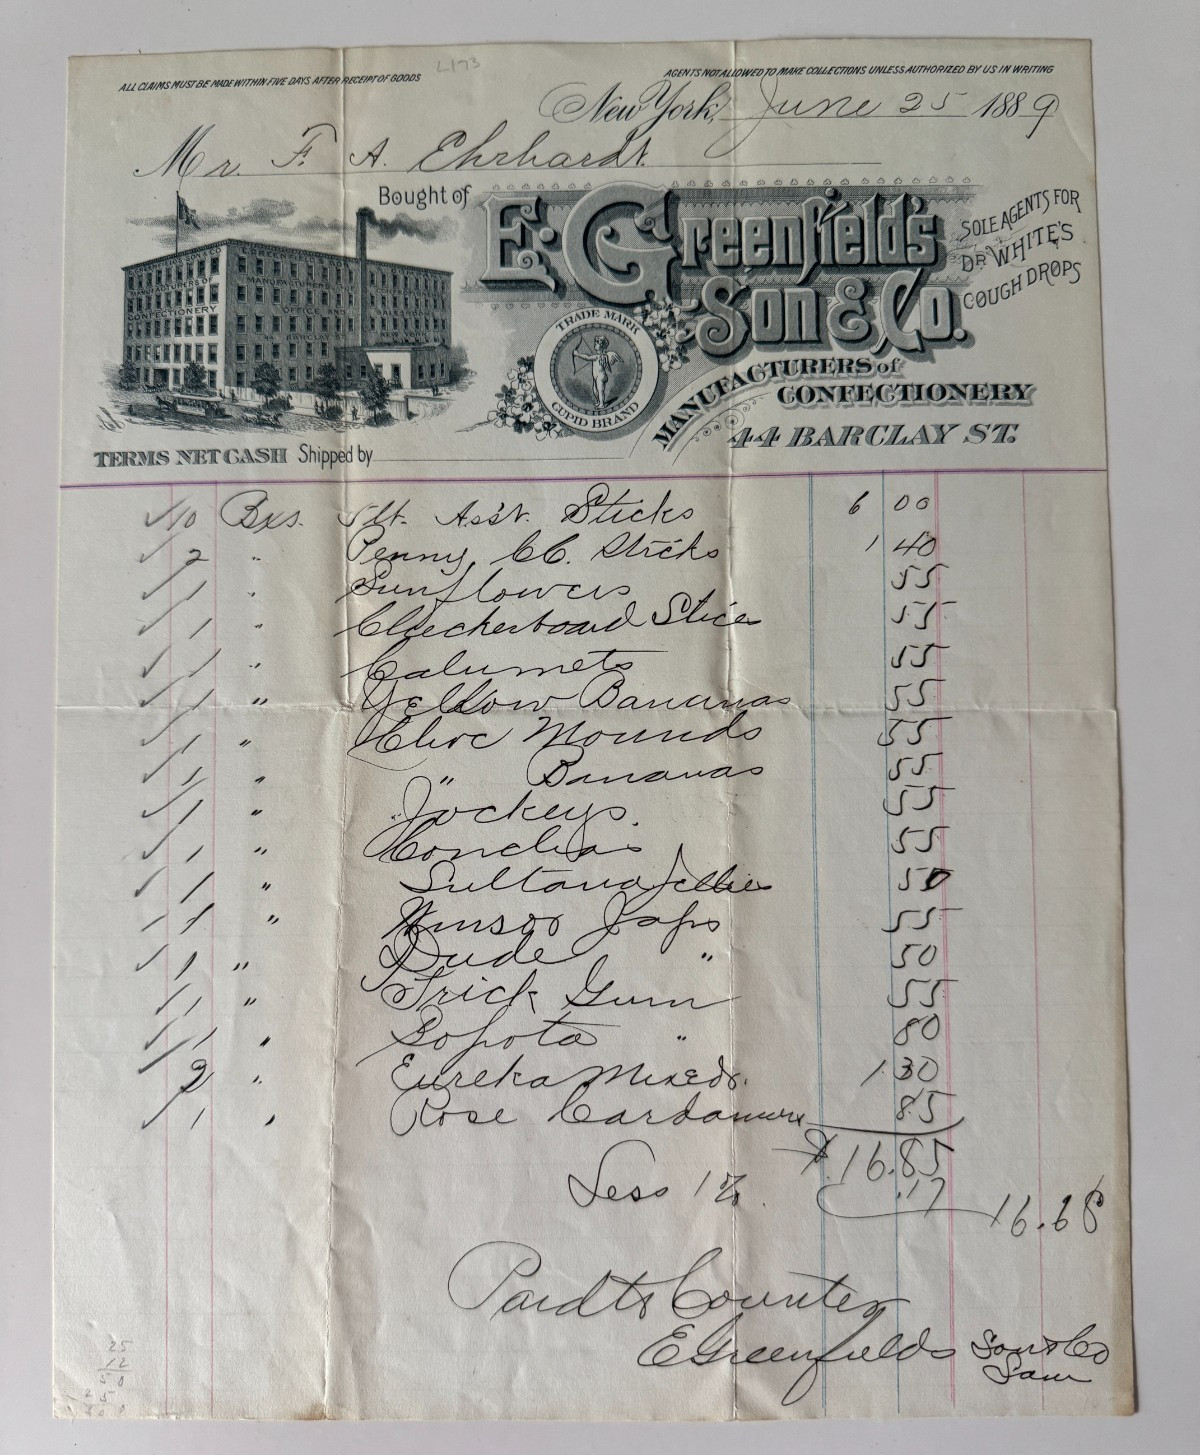 L173
ALL CLAIMS MUST BE MADE WITHIN FIVE DAYS AFTER RECEIPT OF GOODS
AGENTS NOT ALLOWED TO MAKE COLLECTIONS UNLESS AUTHORIZED BY US IN WRITING
New York, June 25 1889
Mr. F. A. Ehrhardt
Bought of
E. Greenfield's
Son & Co.
SOLE AGENTS FOR
DR WHITE'S
COUGH DROPS
CONFECTIONERY
OFFICE AND
BARCLAY
TRADE MARK
CUPID BRAND
MANUFACTURERS of
CONFECTIONERY
44 BARCLAY ST.
TERMS NET CASH Shipped by
10 Bxs. 5 lt. Ass't. Sticks 6 00
2 " Penny CC. Sticks 1 40
1 " Sunflowers 55
1 " Checkerboard Slices 55
1 " Calumets 55
1 " Yellow Bananas 55
1 " Choc Mounds 55
1 " " Bananas 55
1 " Jockeys. 55
1 " Conchas 55
1 " Sultana Jellies 50
1 " Winsor Japs 55
1 " Dude " 50
1 " Trick Gum 55
1 " " 80
2 " Eureka Mixeds. 1 30
1 " Rose 85
$16.85
Less 1% .17 16.68
Paid to Counter
E Greenfields Son & Co
Sam
25
12
50
25
300